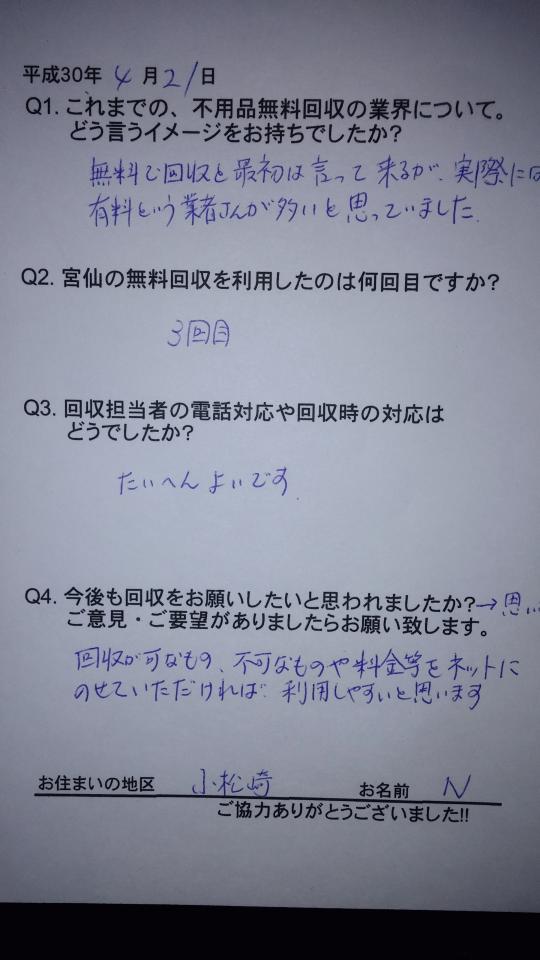 平成30年 4月21日
Q1. これまでの、不用品無料回収の業界について。
どう言うイメージをお持ちでしたか?
無料で回収と最初は言って来るが、実際に
有料という業者さんが多いと思っていました。
Q2. 宮仙の無料回収を利用したのは何回目ですか?
3回目
Q3. 回収担当者の電話対応や回収時の対応は
どうでしたか?
たいへんよいです。
Q4. 今後も回収をお願いしたいと思われましたか?→思い
ご意見・ご要望がありましたらお願い致します。
回収が可なもの、不可なものや料金等をネットに
のせていただければ 利用しやすいと思います
お住まいの地区 小松崎 お名前 N
ご協力ありがとうございました!!